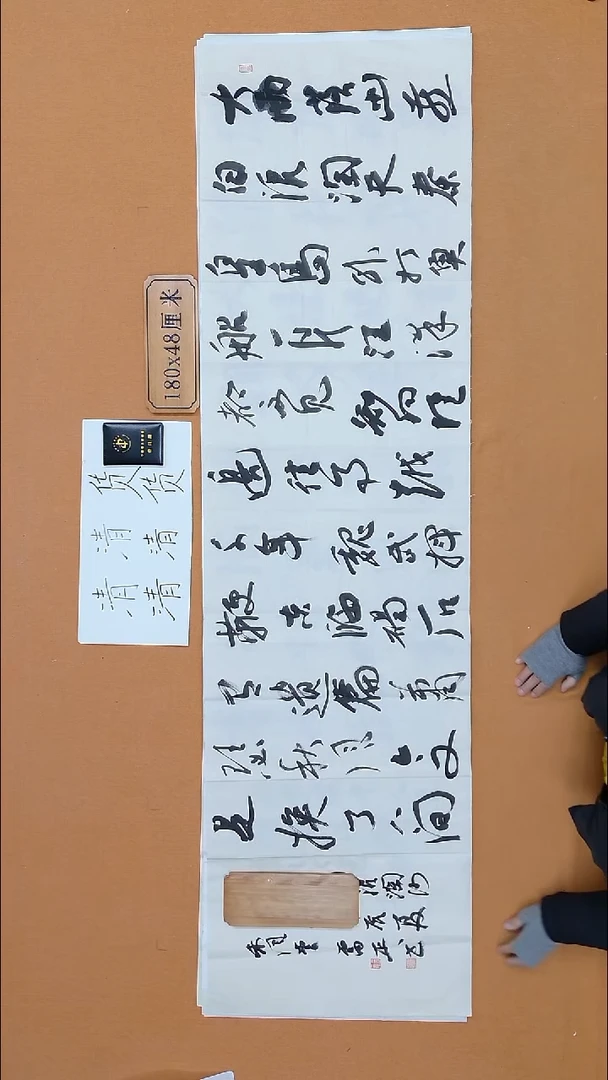 大雨落幽燕
白浪淘天秦
皇岛外打鱼
船一片汪洋
都不见知向谁
边往事越
千年魏武挥
鞭东临碣石
有遗篇萧
瑟秋风今又
是换了人间
浪淘沙
辰夏
180x48厘米
货 清 清
货 清 清